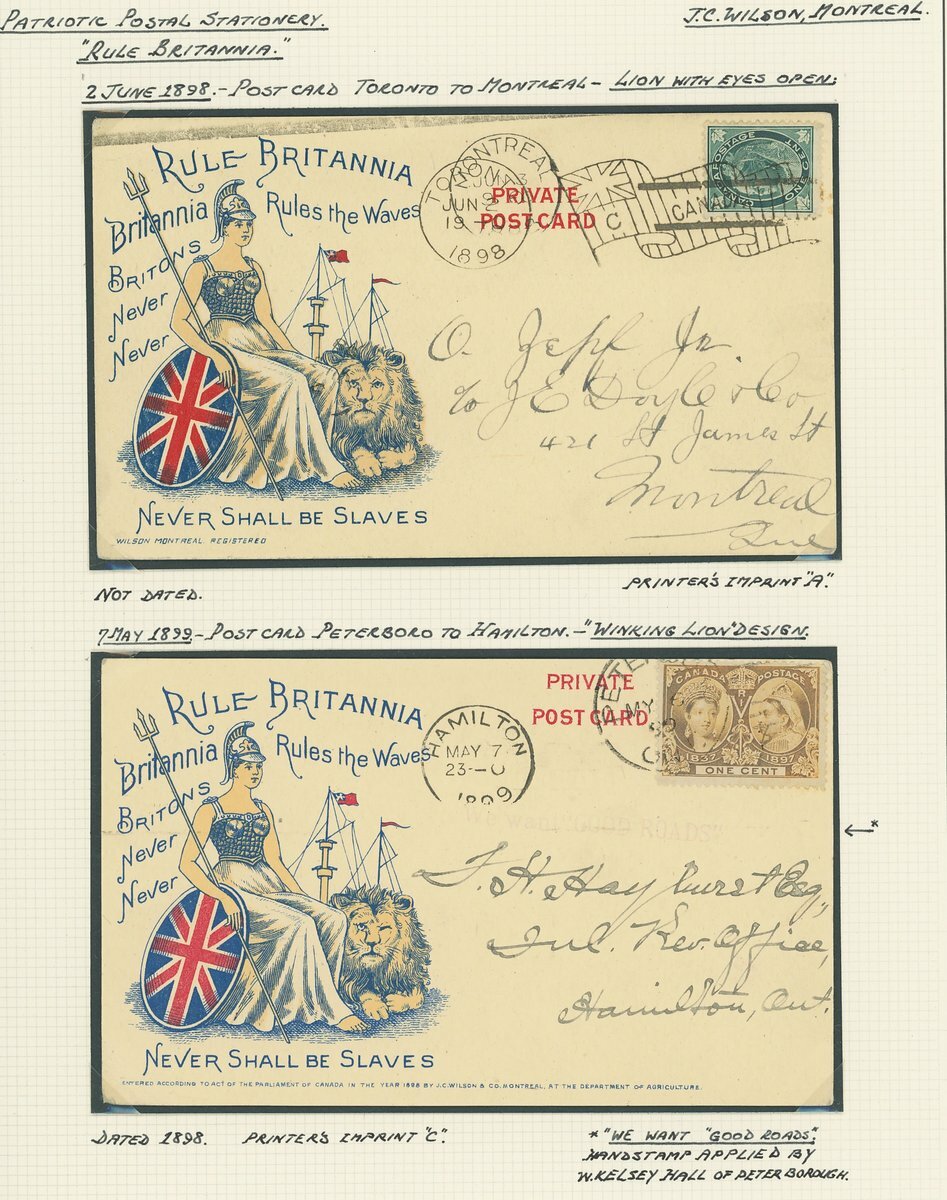 PATRIOTIC POSTAL STATIONERY.
J.C. WILSON, MONTREAL.
"RULE BRITANNIA."
2 JUNE 1898.- POST CARD TORONTO TO MONTREAL- LION WITH EYES OPEN:
RULE BRITANNIA
Britannia Rules the Waves
BRITONS
Never
Never
NEVER SHALL BE SLAVES
WILSON MONTREAL. REGISTERED
MONTREAL
TORONTO
JUN 2
1898
PRIVATE
POST CARD
C
CANADA
CANADA POSTAGE
ONE CENT
O. Zepf Jr.
c/o J E Doyle & Co
421 St James St
Montreal
Que
NOT DATED.
PRINTER'S IMPRINT "A".
7 MAY 1899.- POST CARD PETERBORO TO HAMILTON.- "WINKING LION" DESIGN.
RULE BRITANNIA
Britannia Rules the Waves
BRITONS
Never
Never
NEVER SHALL BE SLAVES
ENTERED ACCORDING TO ACT OF THE PARLIAMENT OF CANADA IN THE YEAR 1898 BY J.C. WILSON & CO. MONTREAL, AT THE DEPARTMENT OF AGRICULTURE.
PRIVATE
POST CARD
HAMILTON
MAY 7
23-0
1899
PETERBORO
MY
CANADA POSTAGE
V R
1837 1897
ONE CENT
We want "GOOD ROADS"
*
Hayhurst Esq,
Inl. Rev. Office,
Hamilton, Ont.
DATED 1898. PRINTER'S IMPRINT "C".
* "WE WANT "GOOD ROADS".
HANDSTAMP APPLIED BY
W. KELSEY HALL OF PETERBOROUGH.